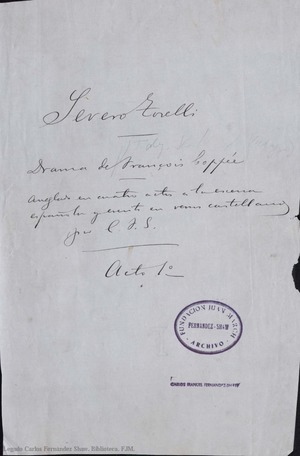 Severo Torelli
Drama de François Coppée
en cuatro actos a la escena
española y escrito en verso castellano
por C. F. S.
Acto 1º
FUNDACION JUAN MARCH
FERNANDEZ-SHAW
ARCHIVO
CARLOS MANUEL FERNANDEZ-SHAW
Legado Carlos Fernández Shaw. Biblioteca. FJM.